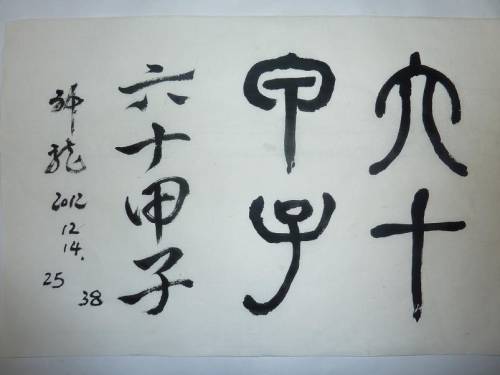 六十
甲子
六十甲子
神龍
2012
12
14.
25
38